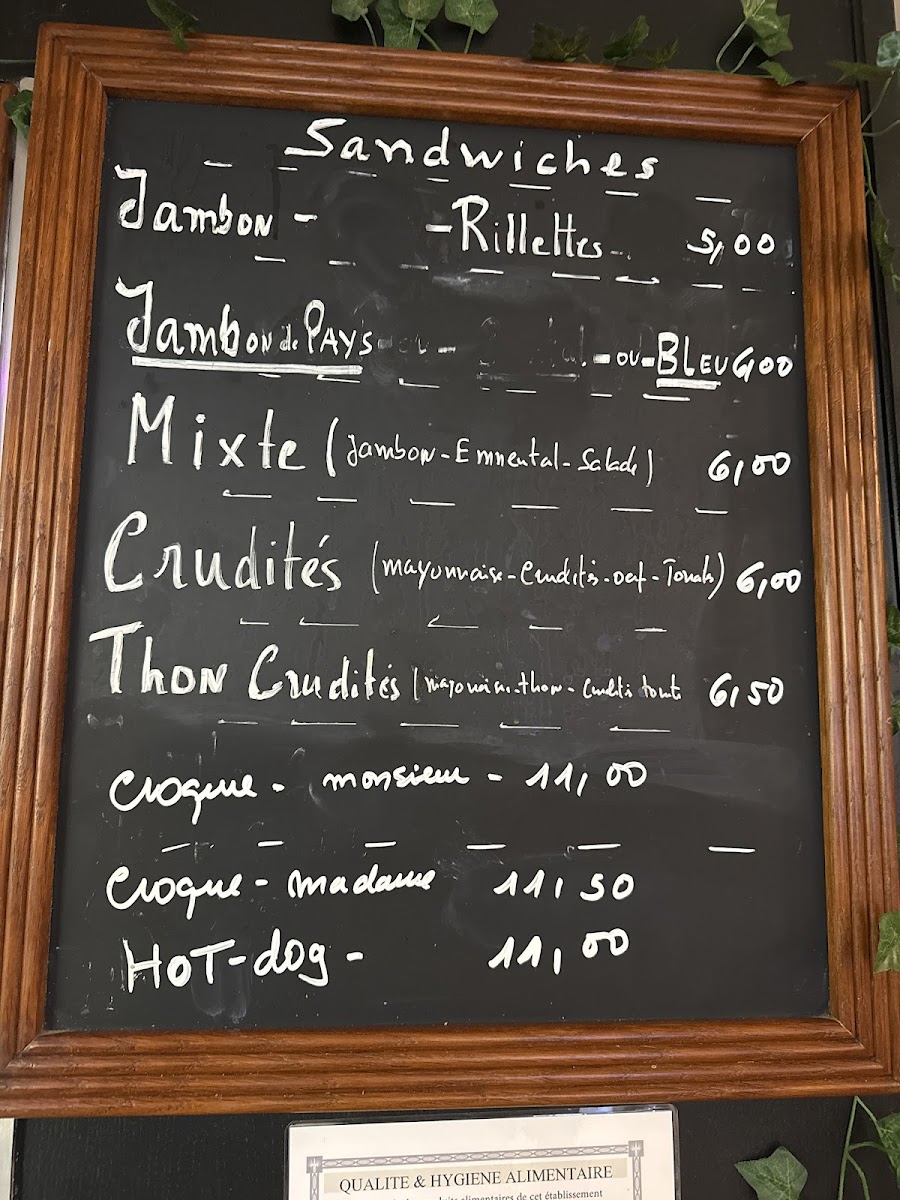 Sandwiches
Jambon - -Rillettes- 5,00
Jambon de PAYS - ou - - ou - BLEU 6,00
Mixte (Jambon - Emmental - Salade) 6,00
Crudités (mayonnaise - Crudités - oeuf - Tomats) 6,00
THON Crudités (thon 6,50
Croque - monsieur - 11,00
Croque - madame 11,50
HOT-dog - 11,00
QUALITE & HYGIENE ALIMENTAIRE
alimentaires de cet établissement